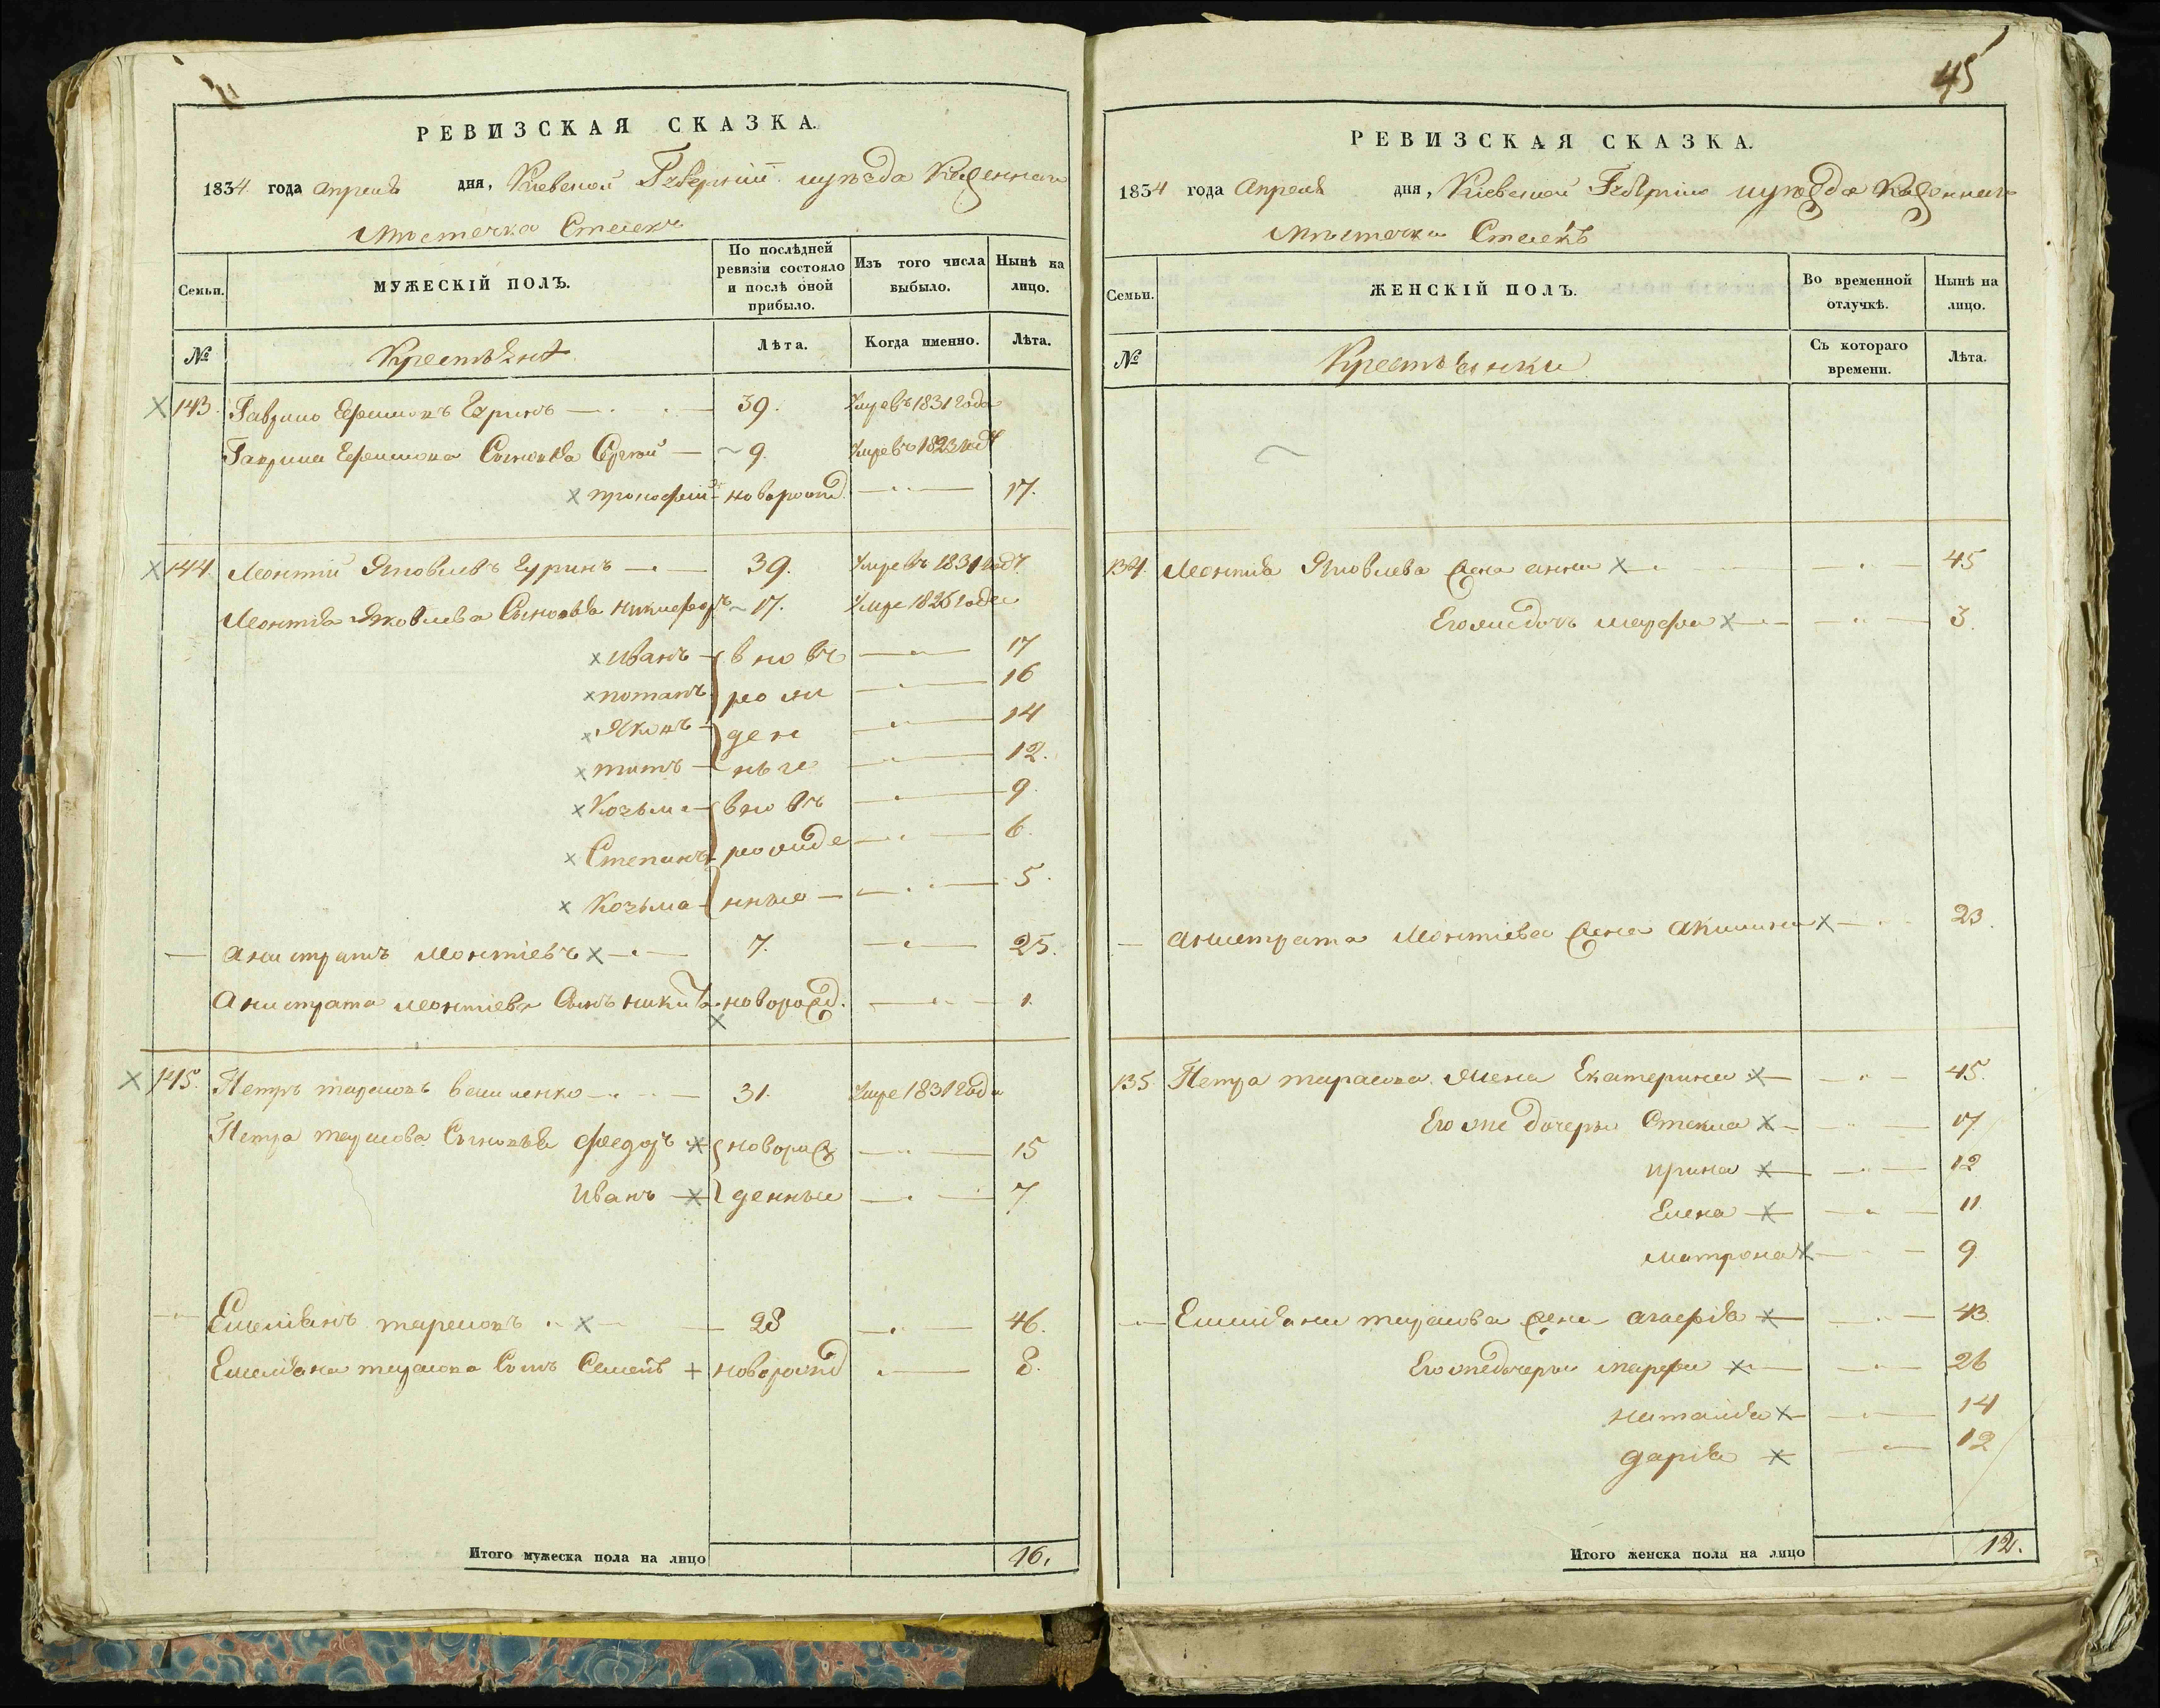 РЕВИЗСКАЯ СКАЗКА.
1834 года Апреля дня, Киевской Губернии уезда Казенного
Местечка Стеек
Семьи.
МУЖЕСКІЙ ПОЛЪ.
По послѣдней ревизіи состояло и послѣ оной прибыло.
Изъ того числа выбыло.
Нынѣ на лицо.
№
Крестьяне
Лѣта.
Когда именно.
Лѣта.
143. Гаврило Ефимовъ Гуринъ 39. Умре въ 1831 года
Гаврила Ефимова Сыновья Сергей 9. Умре въ 1823 году
Прокофій новорожд. 17.
144 Леонтій Яковлевъ Гуринъ 39. Умре въ 1831 году
Леонтія Яковлева Сыновья Никифоръ 17. Умре 1825 года
Иванъ вновь 17
Потапъ рож 16
Яковъ ден 14
Титъ ные 12.
Козьма вновь 9.
Степанъ рожде 6.
Козьма нные 5.
Анистратъ Леонтіевъ 7. 25.
Анистрата Леонтіева Сынъ Никита новорожд. 1.
145. Петръ Тарасовъ 31. Умре 1831 года
Петра Тарасова Сыновья Федоръ новорож 15
Иванъ денные 7
Емеліянъ Тарасовъ 28 46.
Емеліяна Тарасова Сынъ Семенъ новорожд 8.
Итого мужеска пола на лицо 16.
45
РЕВИЗСКАЯ СКАЗКА.
1834 года Апреля дня, Киевской Губернии уезда Казенного
Местечка Стеекъ
Семьи.
ЖЕНСКІЙ ПОЛЪ.
Во временной отлучкѣ.
Нынѣ на лицо.
№
Крестьянки
Съ котораго времени.
Лѣта.
134. Леонтія Яковлева жена Анна 45
Его же дочь Марфа 3.
Анистрата Леонтіева жена Акилина 23.
135 Петра Тарасова жена Екатерина 45.
Его же дочери Стекла 17
Ирина 12
Елена 11.
Матрона 9.
Емиліяна Тарасова жена Агафія 43.
Его же дочери Марфа 26
Наталія 14
Дарія 12
Итого женска пола на лицо 12.